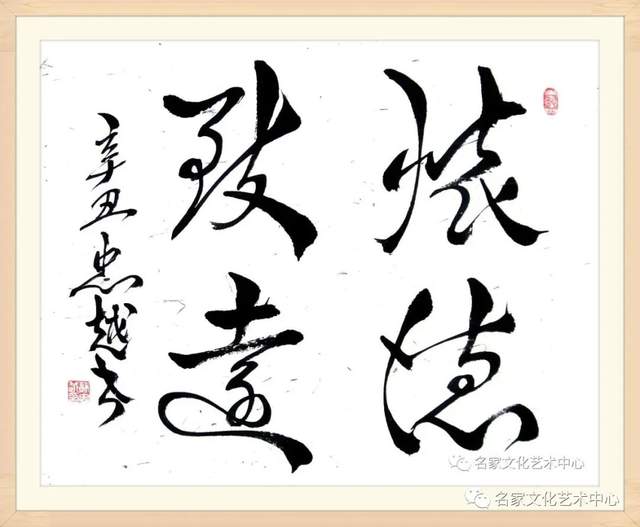 懷德
致遠
辛丑忠越书
名家文化艺术中心
名家文化艺术中心